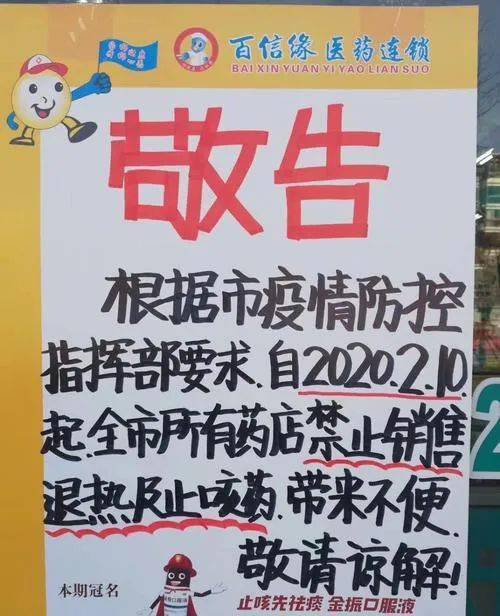 百信缘医药连锁
BAI XIN YUAN YI YAO LIAN SUO
敬告
根据市疫情防控
指挥部要求.自2020.2.10.
起.全市所有药店禁止销售
退热及止咳药.带来不便.
敬请谅解!
本期冠名
止咳先祛痰 金振口服液
2